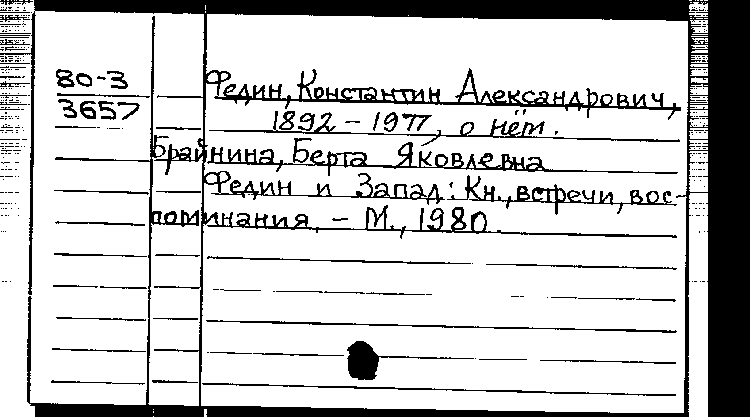 80-3
3657
Федин, Константин Александрович,
1892 - 1977, о нём.
Брайнина, Берта Яковлевна
Федин и Запад: Кн., встречи, вос-
поминания. - М., 1980.